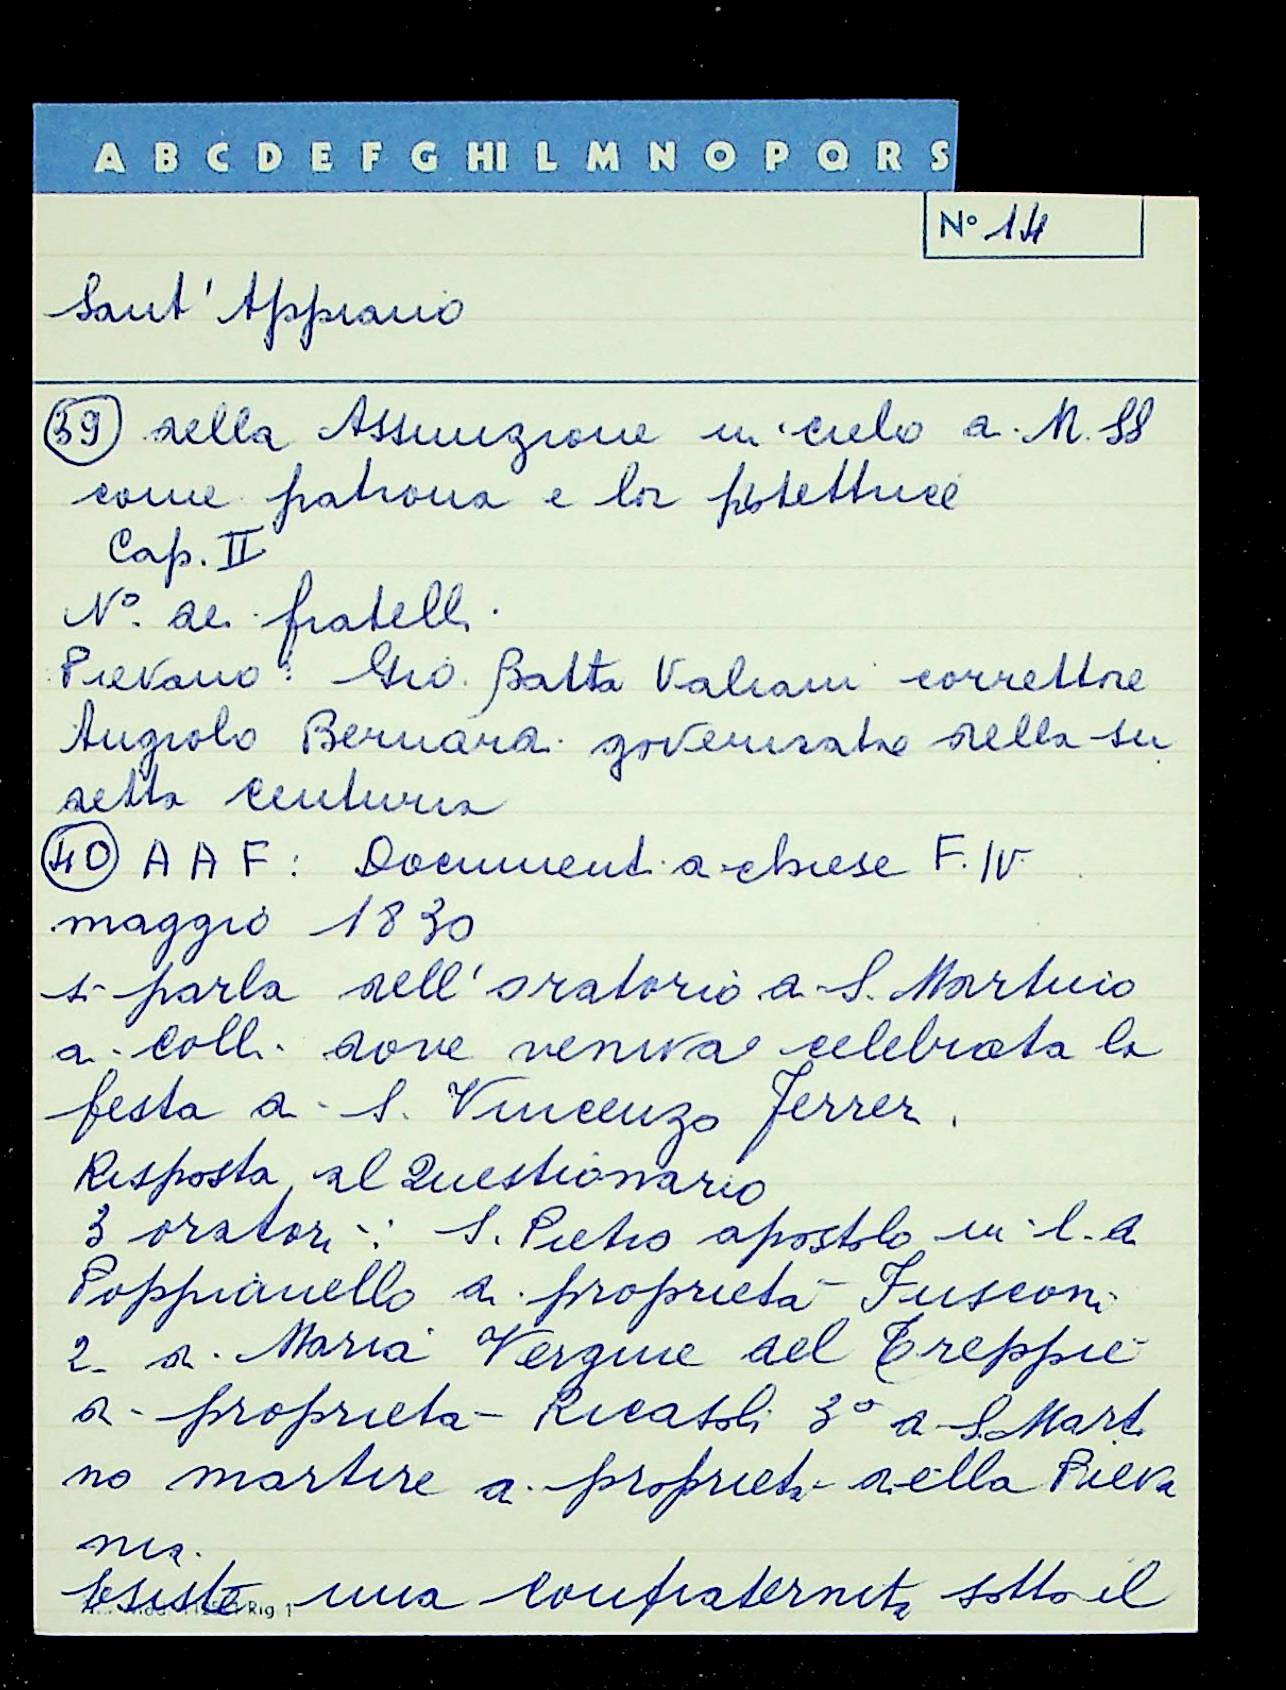 A B C D E F G HI L M N O P Q R S
N° 14
Sant'Appiano
39 della Assunzione in cielo di M. SS
come patrona e lor protettrice
Cap. II
N°. dei fratelli.
Pievano: Gio. Batta Valiani correttore
Angiolo Bernardi governatore della su
detta centuria
40 A A F: Documenti di chiese F. IV
maggio 1830
si parla dell'oratorio di S. Martino
ai Colli dove veniva celebrata la
festa di S. Vincenzo Ferrer.
Risposta al Questionario
3 oratori: S. Pietro apostolo in l. d
Poppianello di proprietà Fusconi
2. di Maria Vergine del Treppiè
di proprietà Ricasoli 3° di S. Marti
no martire di proprietà della Pieva
nia.
Esiste una Confraternita sotto il
Rig 1